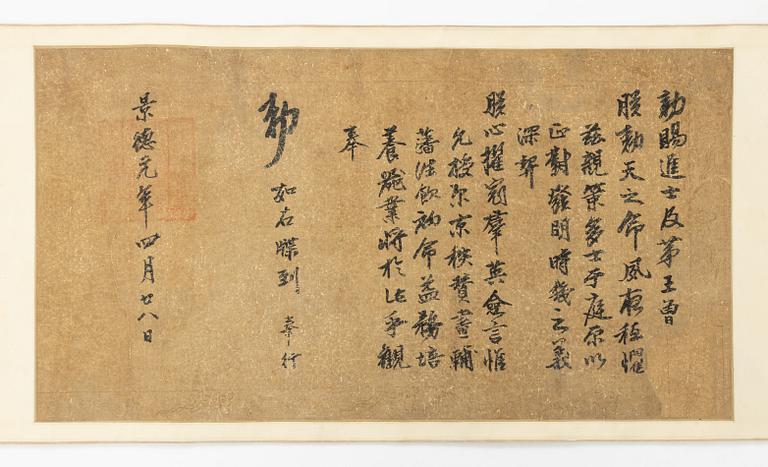 勅賜進士及第王曾
朕勅天之命夙夜祗懼
茲親策多士于庭原以
正對發明時幾之義
深契
朕心擢冠羣英僉言惟
允授尔京秩贊畫輔
藩往欽勅命益務培
養器業將於法乎觀
奉
勅
如右牒到奉行
景德元年四月廿八日